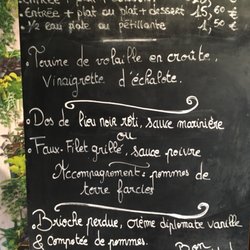 Entrée + plat + dessert
. Entrée + plat ou plat + dessert 15,60 €
. 1/2 eau plate ou pétillante 1,50 €
. Terrine de volaille en croûte,
Vinaigrette d'échalote.
. Dos de lieu noir rôti, sauce marinière
ou
. Faux-Filet grillé, sauce poivre
Accompagnement: pommes de
terre farcies
. Brioche perdue, crème diplomate vanille
& compotée de pommes.